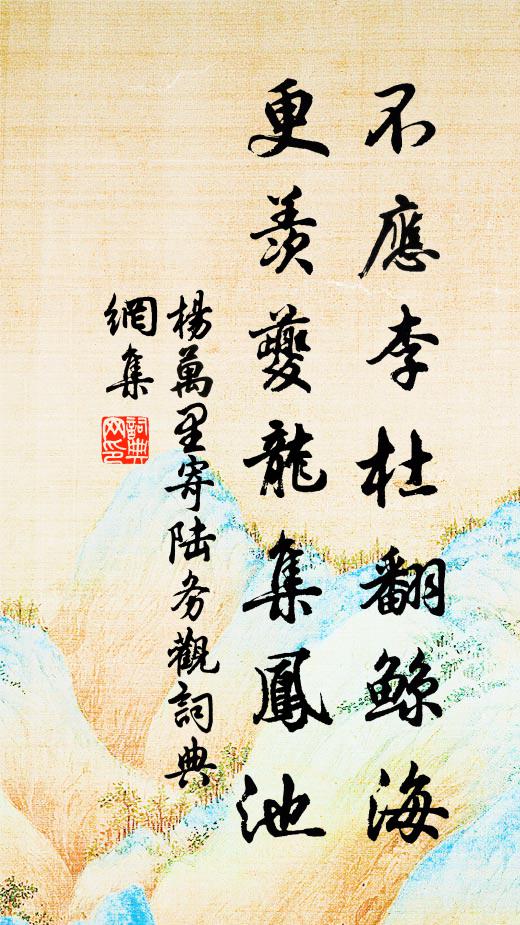 不應李杜翻鲸海
更羨夔龍集鳳池
楊萬里寄陆务觀詞典
網集
詞典
网印